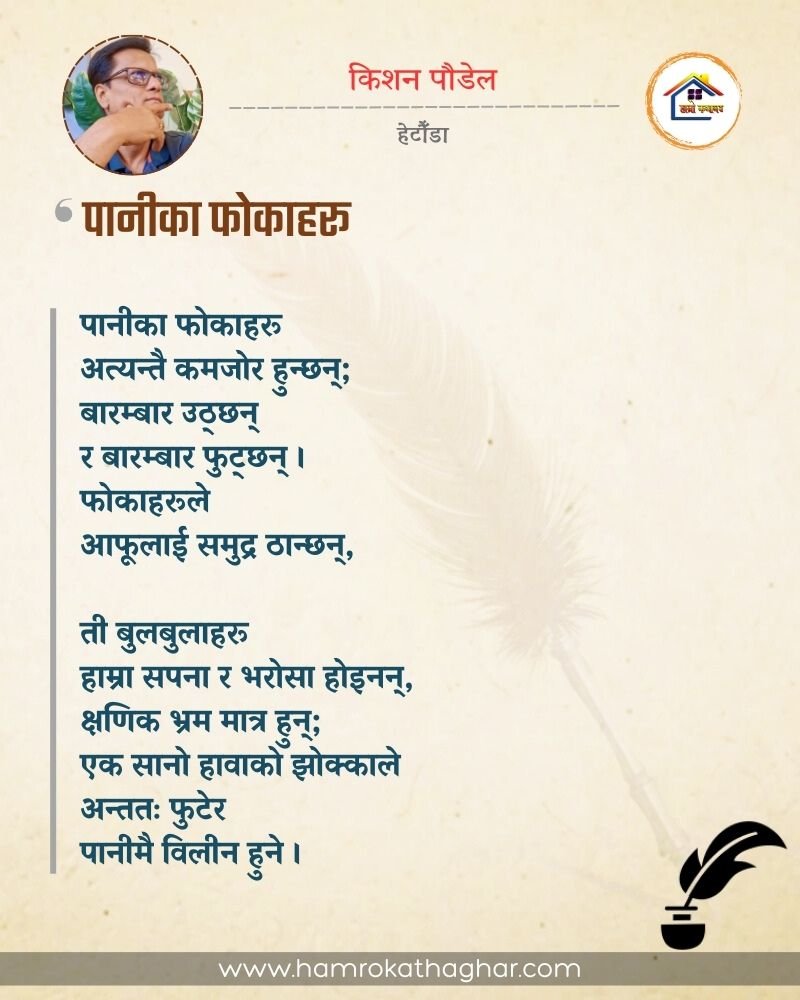 किशन पौडेल
हेटौंडा
हाम्रो कथाघर
‘ पानीका फोकाहरू
पानीका फोकाहरू
अत्यन्तै कमजोर हुन्छन्;
बारम्बार उठ्छन्
र बारम्बार फुट्छन् ।
फोकाहरूले
आफूलाई समुद्र ठान्छन्,
ती बुलबुलाहरू
हाम्रा सपना र भरोसा होइनन्,
क्षणिक भ्रम मात्र हुन्;
एक सानो हावाको झोक्काले
अन्ततः फुटेर
पानीमै विलीन हुने ।
www.hamrokathaghar.com